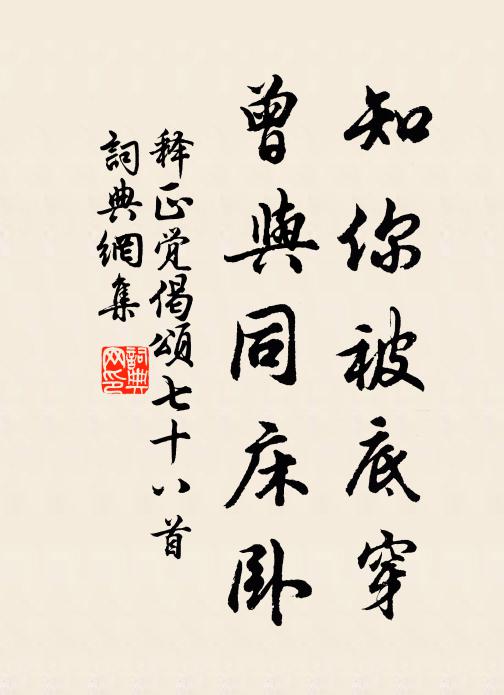 知你被底穿
曾與同床臥
释正觉偈頌七十八首
詞典網集
詞典网印